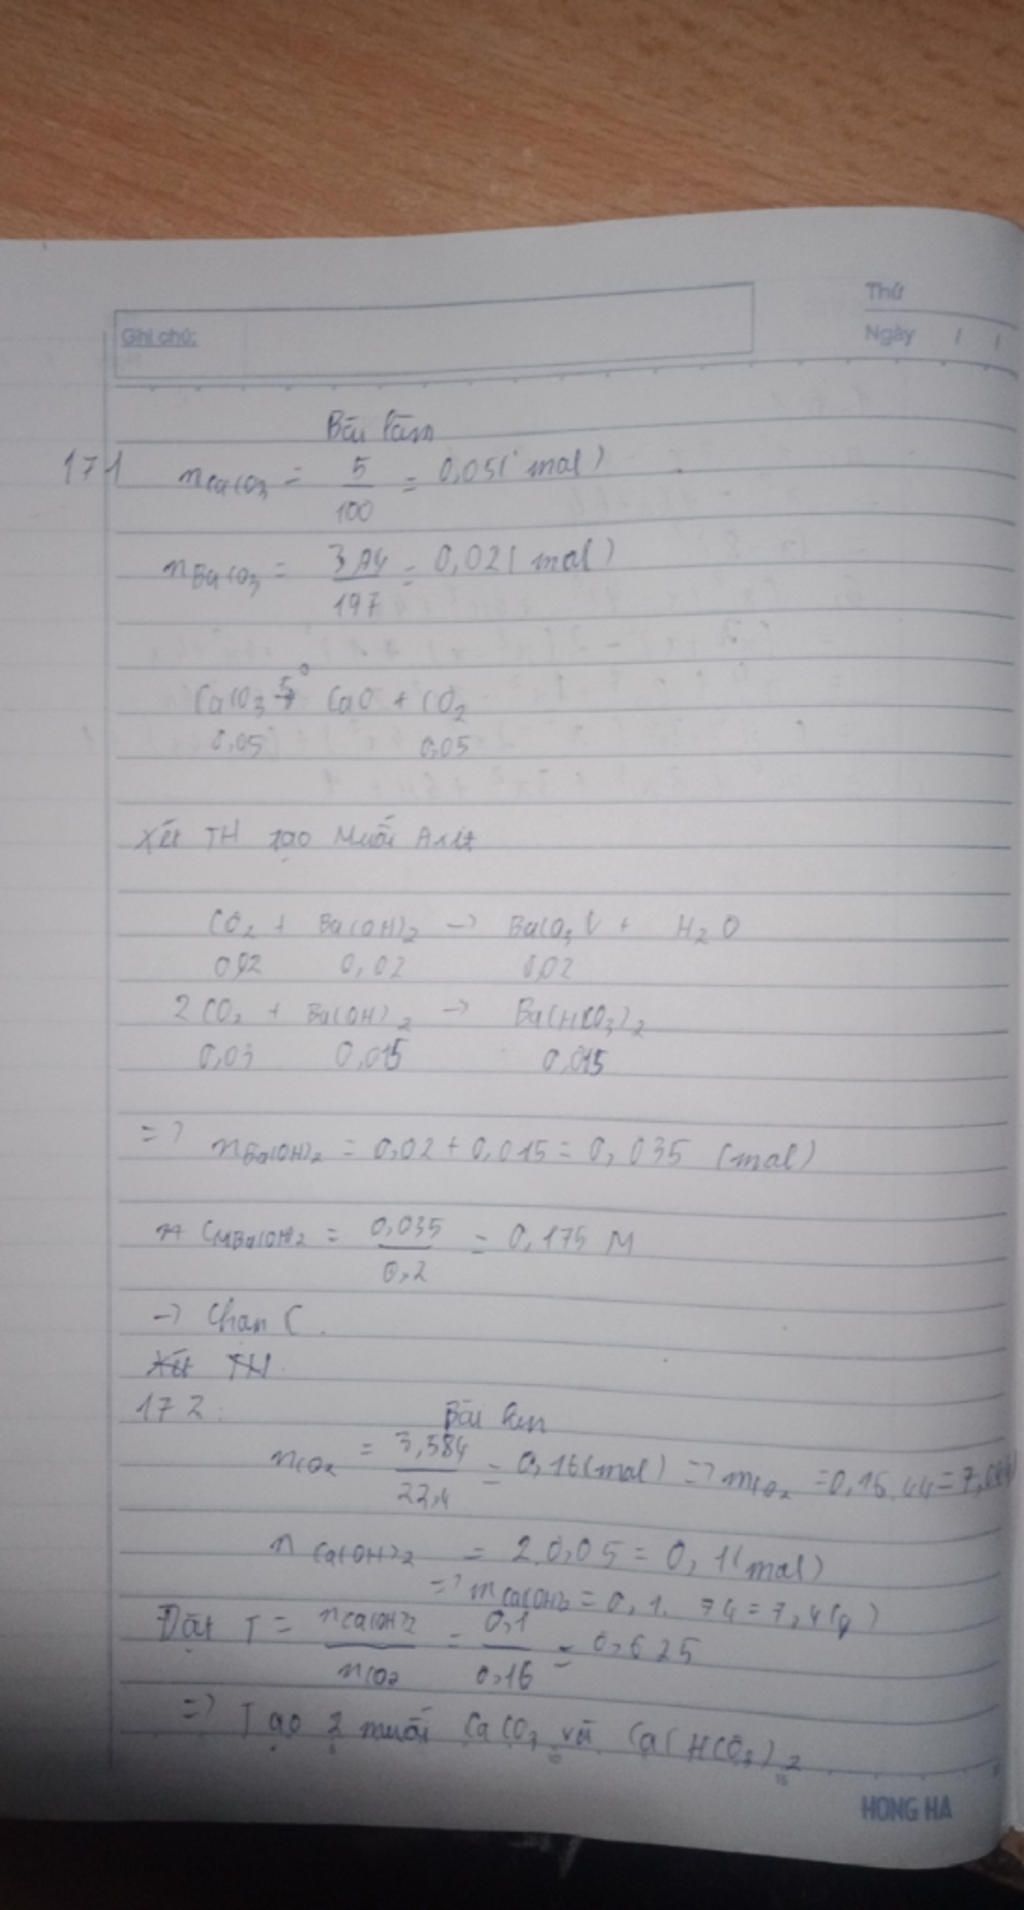 Thứ
Ghi chú:
Ngày / /
Bài làm
171 nCaCO3 = 5/100 = 0,05 (mol)
nBaCO3 = 3,94/197 = 0,02 (mol)
CaCO3 t°→ CaO + CO2
0,05 0,05
Xét TH tạo Muối Axit
CO2 + Ba(OH)2 → BaCO3 ↓ + H2O
0,02 0,02 0,02
2CO2 + Ba(OH)2 → Ba(HCO3)2
0,03 0,015 0,015
=> nBa(OH)2 = 0,02 + 0,015 = 0,035 (mol)
CMBa(OH)2 = 0,035/0,2 = 0,175 M
→ Chọn C.
Xét TH
172: Bài làm
nCO2 = 3,584/22,4 = 0,16 (mol) => mCO2 = 0,16.44 =
nCa(OH)2 = 2.0,05 = 0,1 (mol)
=> mCa(OH)2 = 0,1. 74 = 7,4 (g)
Đặt T = nCa(OH)2/nCO2 = 0,1/0,16 = 0,625
=> Tạo 2 muối CaCO3 và Ca(HCO3)2
HONG HA